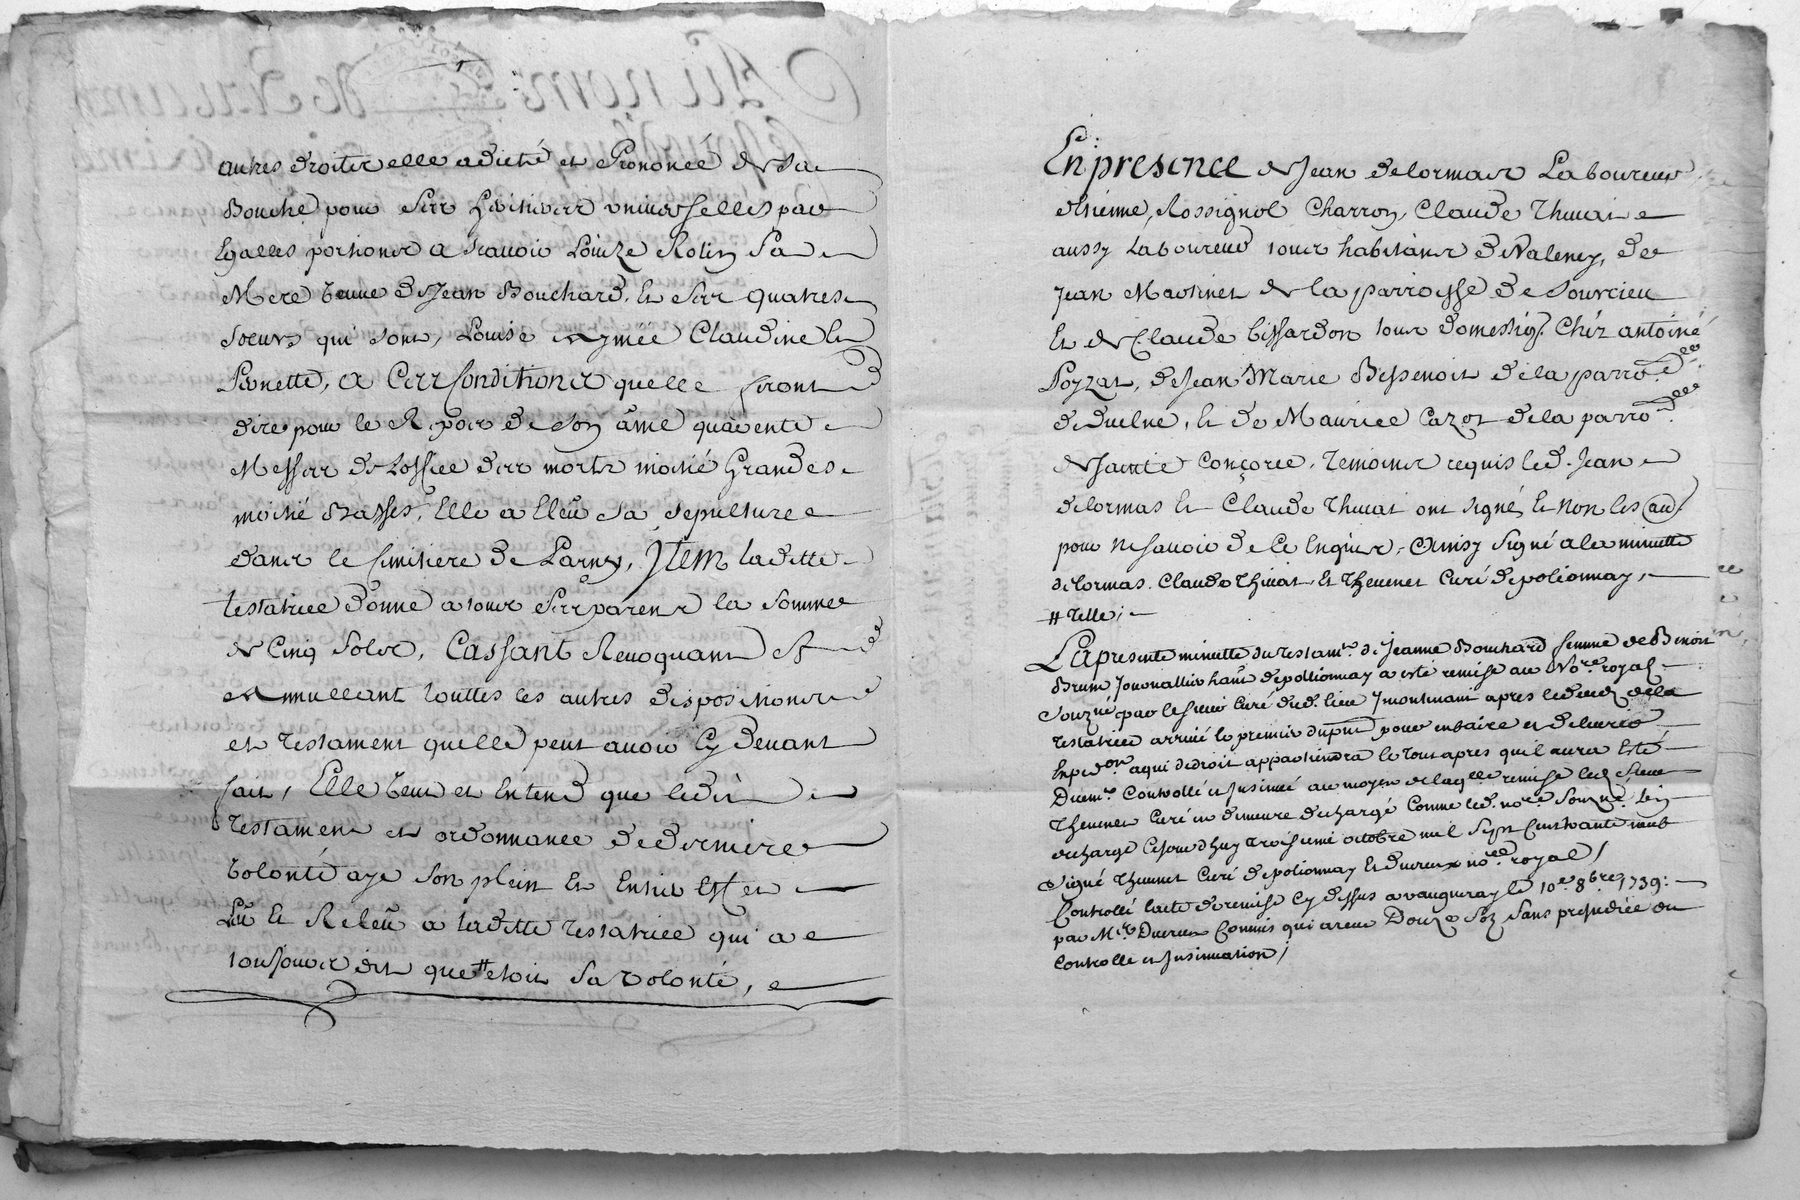 autres droits elle a dicté et Prononcé de Sa
Bouche pour Ses héritières universelles par
Egalles portions a scavoir Louize Rolin Sa
Mere veuve de Jean Bouchard, et Ses quatres
Soeurs qui sont, Louise aymée Claudine Et
Pierrette, a Ces Conditions quelle feront
dire pour le Repos de son âme quarente
Messes de Loffice des morts moitié Grandes
moitié Basses, Elle a Eleü Sa sepulture
dans le Cimitiere de Larny, Jtem laditte
testatrice donne a tous Ses parens la Somme
de Cinq Sols, Cassant Revoquant Et
annullant touttes les autres dispositions
et testament quelle peut avoir Cy devant
fait, Elle veut et Entend que ledit
testament et ordonnance de derniere
volonté aye Son plein Et Entier Effet
Lû Et Releü a laditte testatrice qui a
toujours dit que telle etoit Sa volonté,
En presence de Jean delormas Laboureur
etienne Rossignol Charron, Claude Thivat
aussy Laboureur tous habitans de Valency, de
Jean Martinet de la parroisse de Sourcieu
Et de Claude Bissardon tous domestiq. Chéz antoine
Poyzat, de Jean Marie Bessenoit de la parro.
de duelne, Et de Maurice Cazot de la parro.
de Sainte Conçorce, temoins requis led. Jean
delormas Et Claude Thivat ont signé Et non les au.
pour ne savoir de Ce Enquis, Ainsy Signé a la minutte
delormas. Claude Thivat, Et Thevenet Curé de pollionnay,
# telle;
La presente minutte du testam. de Jeanne Bouchard femme de Benoit
Brun Journallier hant de pollionnay a esté remise au No.re royal
Souzné par le Sieur Curé dud. lieu Jncontinant apres le deced de la
testatrice arrivé le premier du pnt pour en faire et delivrer
Exped.on a qui de droit appartiendra le tout apres qu'il aura Esté
Duem. Controllé et Jnsinué au moyen de laq.lle remise led. Sieur
Thevenet Curé en demeure dechargé Comme led. no.re Souzné Len
decharge Cejourdhuy troisieme octobre mil Sept Cent trante neuf
Signé Thevenet Curé de pollionnay Et Ducreux no.re royal /
Controllé lacte de remise Cy dessus a vaugneray le 10e 8bre 1739:
par Mr. Ducreux Commis qui a receu Douze Solz Sans prejudice du
Controlle et Jnsinuation /